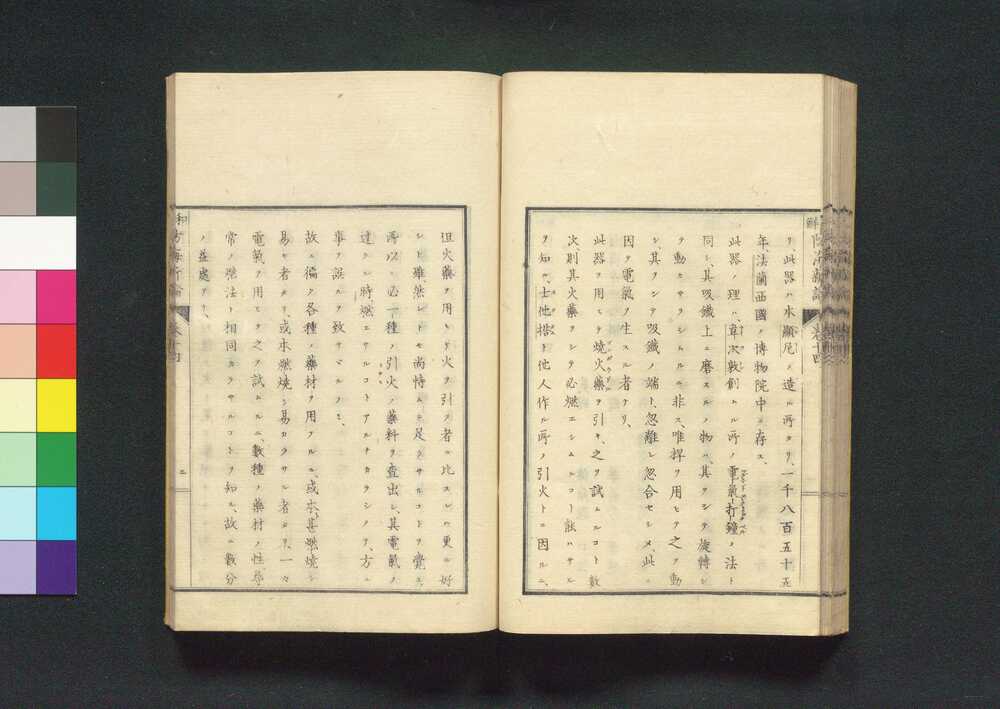 リ、此器ハ木顯厄ノ造ル所タリ、一千八百五十五
年、法蘭西國ノ博物院中ニ存ス、
此器ノ理ハ、韋次敦創ムル所ノ電氣打鐘ノ法ト
同シ、其吸鐵上ニ磨スルノ物ハ其ヲシテ旋轉シ
ヲ動セサラシムルニ非ス、唯桿ヲ用ヒテ之ヲ動
シ、其ヲシテ吸鐵ノ端ト、忽離レ忽合セシメ、此ニ
因テ電氣ノ生スル者ナリ、
此器ヲ用ヒテ燒火藥ヲ引キ、之ヲ試ムルコト數
次、則其火藥ヲシテ必燃エシムルコト能ハサル
ヲ知ル、士他楷ト他人作ル所ノ引火トニ因ルニ、
但火藥ヲ用ヒテ火ヲ引ク者ニ比スレハ更ニ好
シト雖、然レトモ尚恃ムニ足ラサルコトヲ覺エ、
所以ニ必一種ノ引火ノ藥料ヲ查出シ、其電氣ノ
達スル時、燃エサルコトアルナカラシメテ、方ニ
事ヲ誤ルヲ致サヽルノミ、
故ニ徧ク各種ノ藥材ヲ用フルニ、或本甚燃燒シ
易キ者アリ、或本燃燒シ易カラサル者アリ、一々
電氣ヲ用ヒテ之ヲ試ムルニ、數種ノ藥材ノ性尋
常ノ燃法ト相同カラサルコトヲ知ル、故ニ數分
ノ益處アリ、
卷十四
二